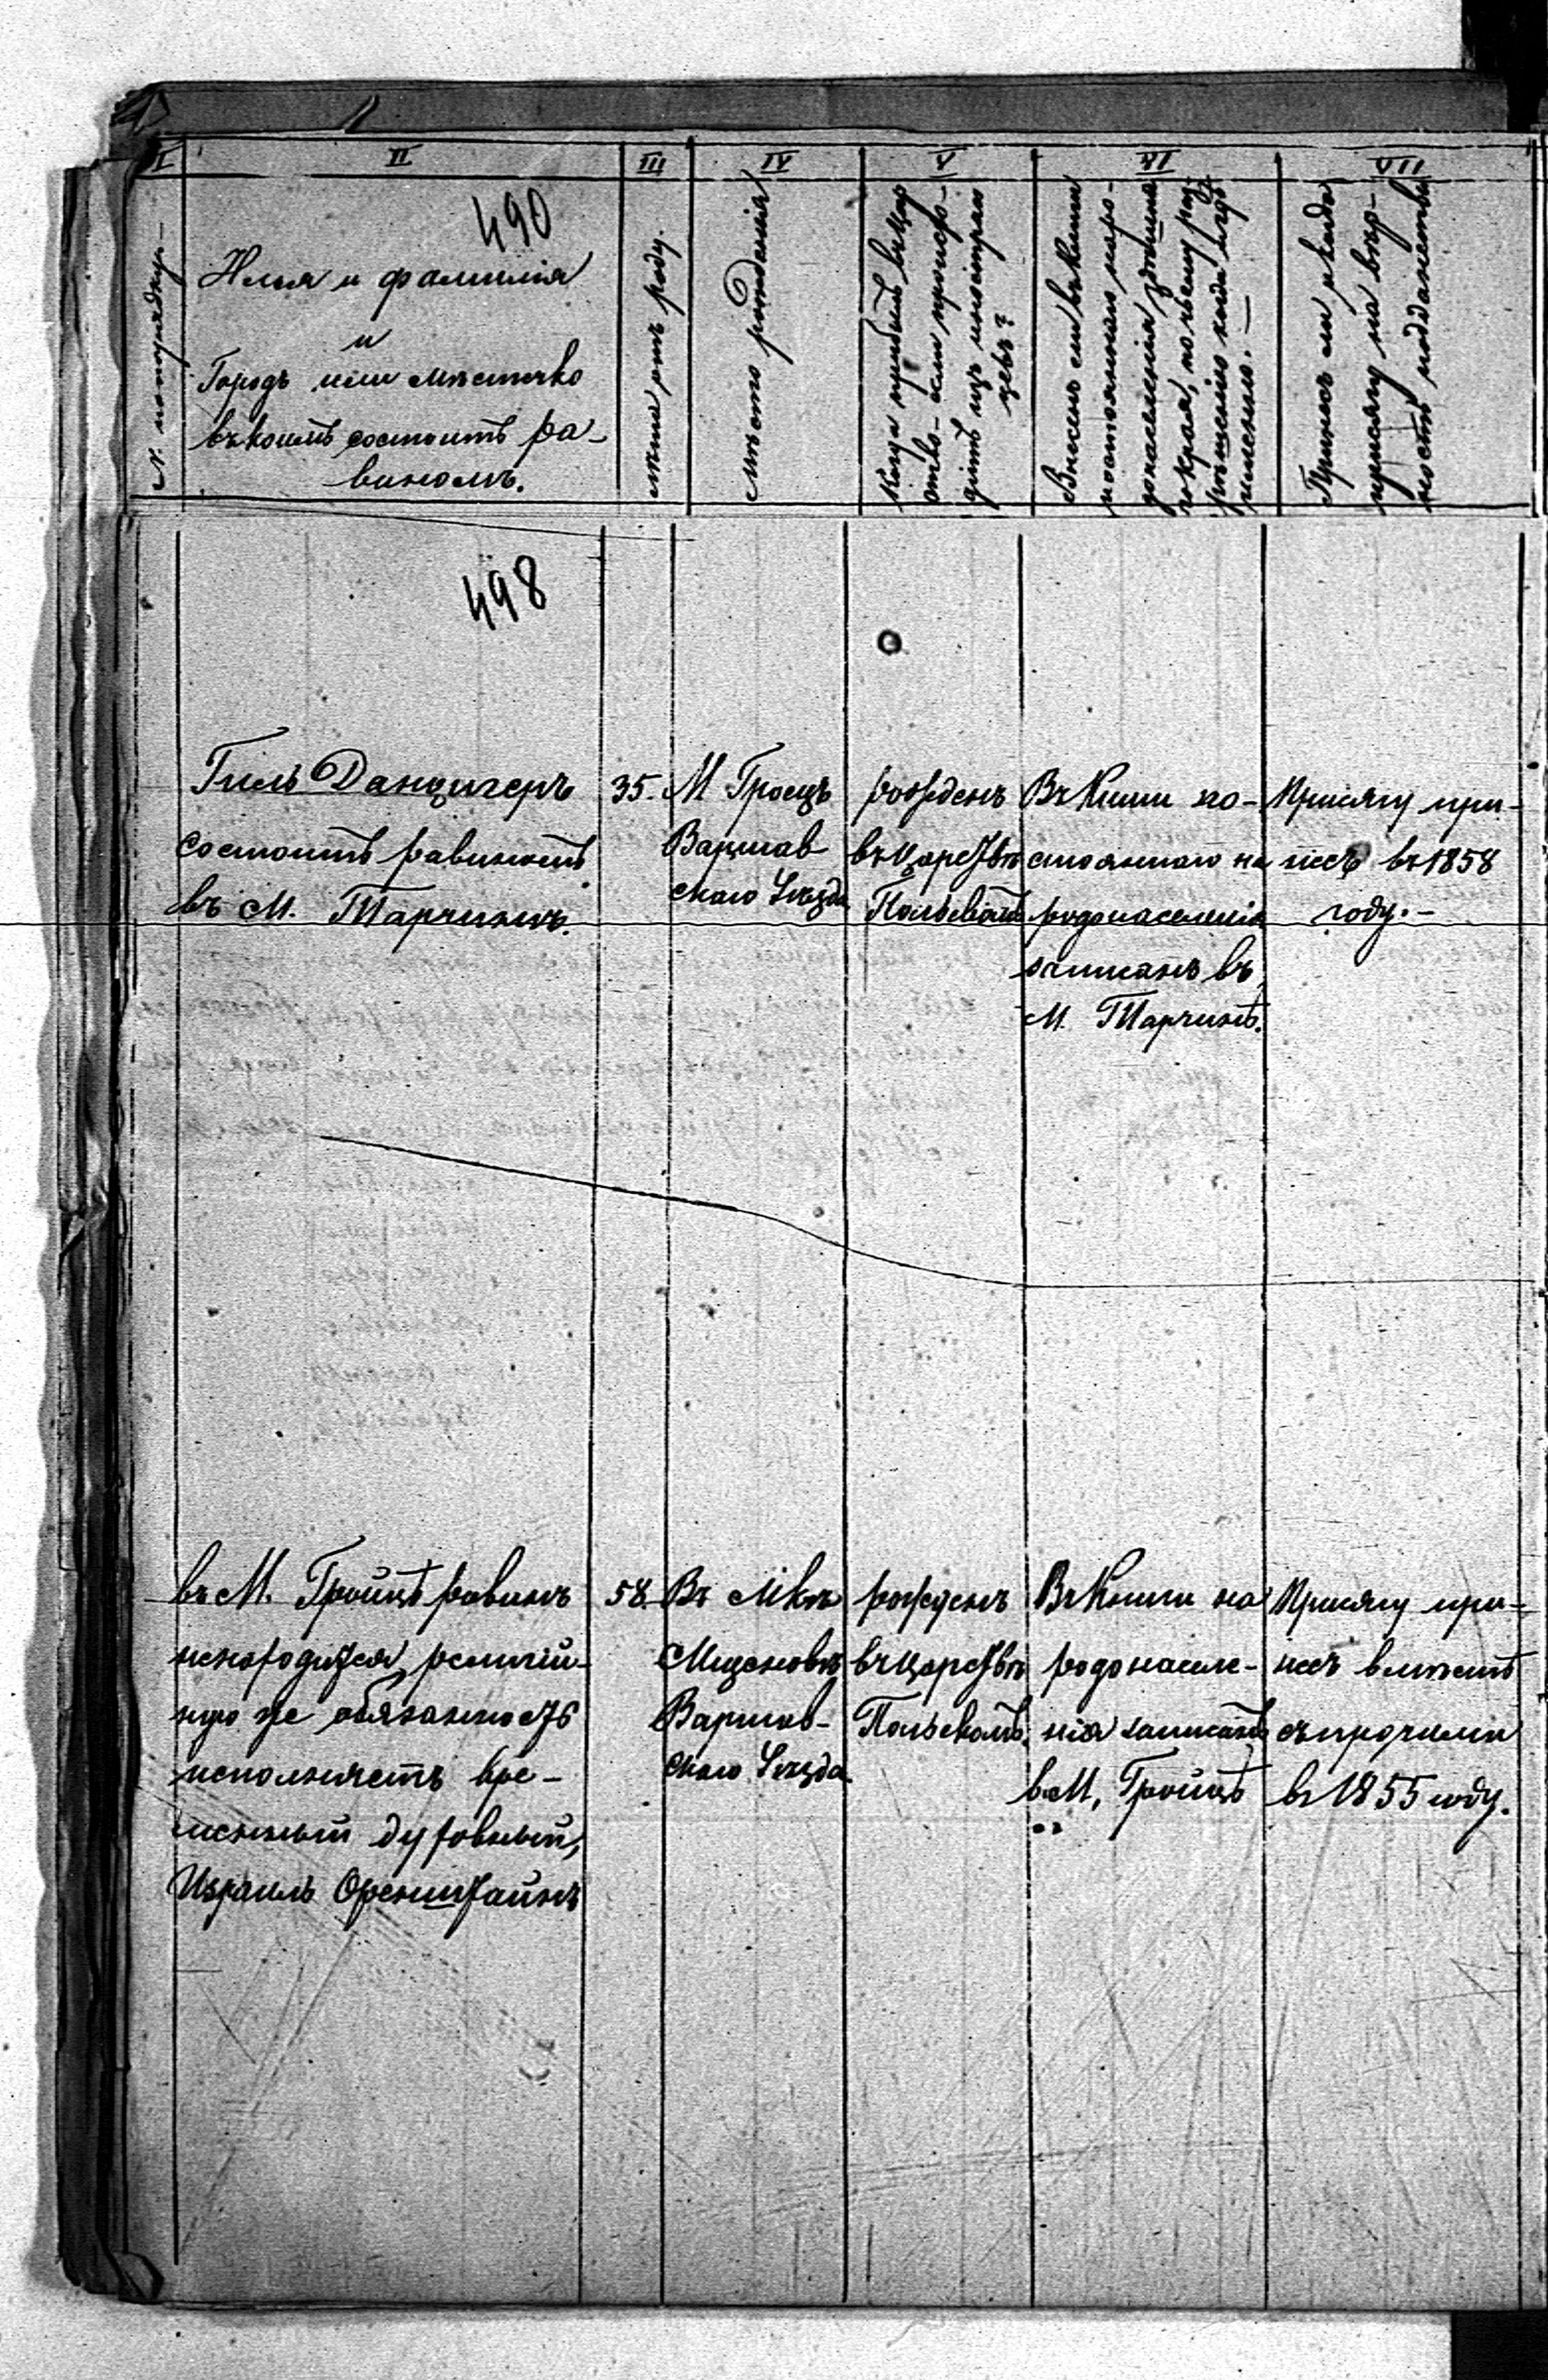 I II III IV V VI VII
490
№ попорядку.—
Имя и фамилія
и
Городъ или мѣстечко
въ коимъ состоитъ ра-
виномъ.
лѣта отъ роду.
Мѣсто рожденія
Когда прибылъ въ Цар
ство- если происхо-
дитъ изъ иностран
цевъ?
Внесенъ ли въ книги
постояннаго наро-
донаселенія здѣшня
го края, по чьему раз-
рѣшенію когда и гдѣ
именно.—
Принесъ ли и когда
присягу на вѣр-
ность подданства
498
Гиль Данцигеръ
состоитъ равиномъ
въ М. Тарчинѣ.
35.
М Гроецъ
Варшав
скаго Уѣзда
рожденъ
въ Царствѣ
Польскомъ
Въ Книги по-
стояннаго на
родонаселенія
записанъ въ
М. Тарчинѣ.
Присягу при-
несъ въ 1858
году.—
въ М. Гройцѣ равинъ
ненаходится, религій-
ную же обязанность
исполняетъ вре-
менный духовный,
Израиль Оренштайнъ
58.
Въ Мкѣ
Мщоновѣ
Варшав-
скаго Уѣзда.
рожденъ
въ Царствѣ
Польскомъ.
Въ Книги на
родонаселе-
нія записанъ
въ М. Гройцѣ
Присягу при-
несъ вмѣстѣ
съ прочими
въ 1855 году.